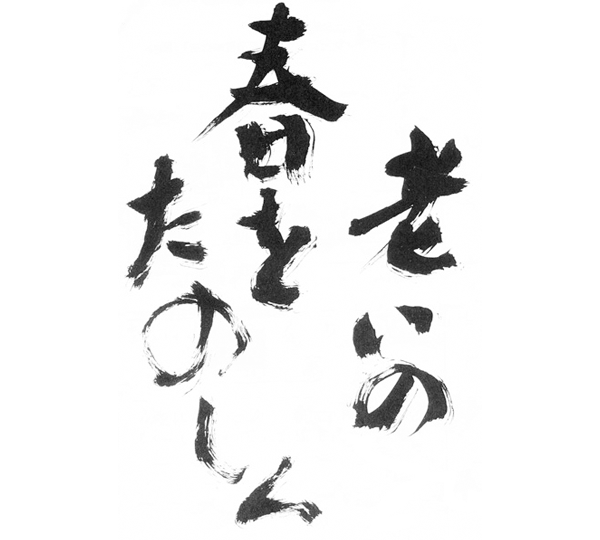 老いの
春を
たのしん